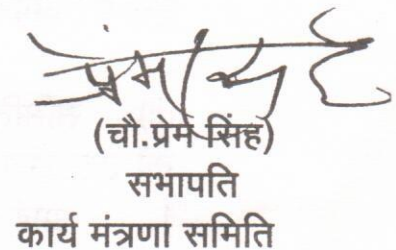 प्रेम सिंह
(चौ.प्रेम सिंह)
सभापति
कार्य मंत्रणा समिति